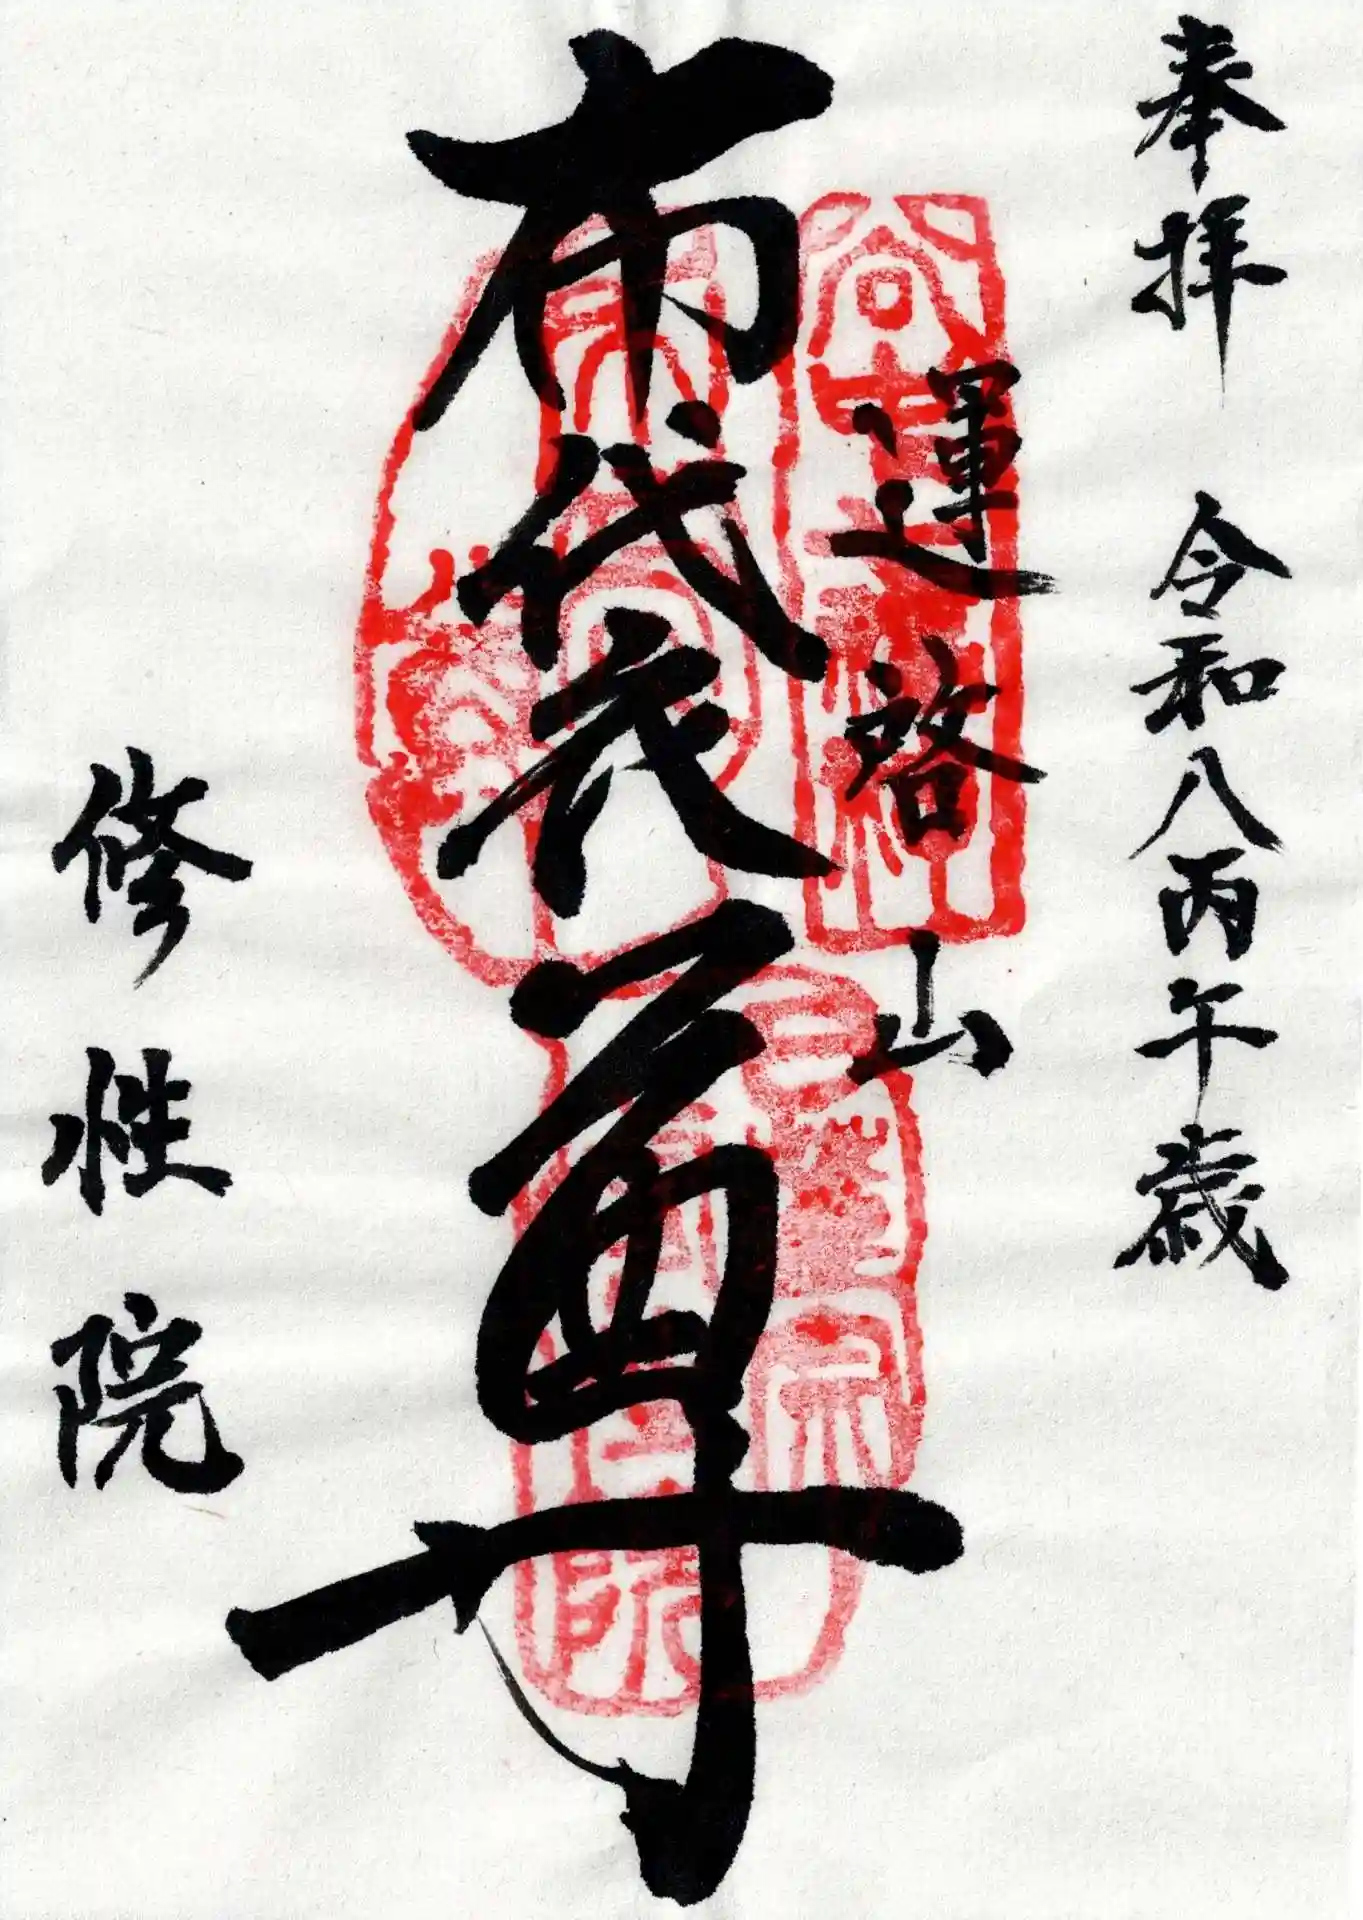 奉拝　令和八丙午歳
運啓山
布代衣尊
修性院